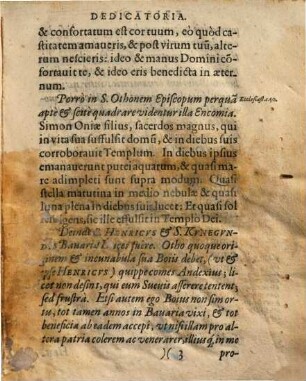 DEDICATORIA.
& confortatum est cor tuum, eò quòd ca-
stitatem amaueris, & post virum tuũ, alte-
rum nescieris: ideo & manus Domini cõ-
fortauit te, & ideo eris benedicta in æter-
num.
Porrò in S. Othonem Episcopum perquã
apte & scite quadrare videntur illa Encomia.
Simon Oniæ filius, sacerdos magnus, qui
in vita sua suffulsit domũ, & in diebus suis
corroborauit Templum. In diebus ipsius
emanauerunt putei aquarum, & quasi ma-
re adimpleti sunt supra modum. Quasi
stella matutina in medio nebulæ & quasi
luna plena in diebus suis lucet: Et quasi sol
refulgens, sic ille effulsit in Templo Dei.
HENRICVS & S. KVNEGVN-
Bauariæ fuére. Otho quoque ori-
ginem & incunabula sua Boiis debet, (vt &
ipse HENRICVS) quippe comes Andexius; li-
cet non desint, qui eum Sueuis asserere tentent,
sed frustrà. Etsi autem ego Boius non sim or-
tu, tot tamen annos in Bauaria vixi, & tot
beneficia ab eadem accepi, vt istam pro al-
tera patria colerem ac venerarer, illiusq, in me
)( 3
pro-